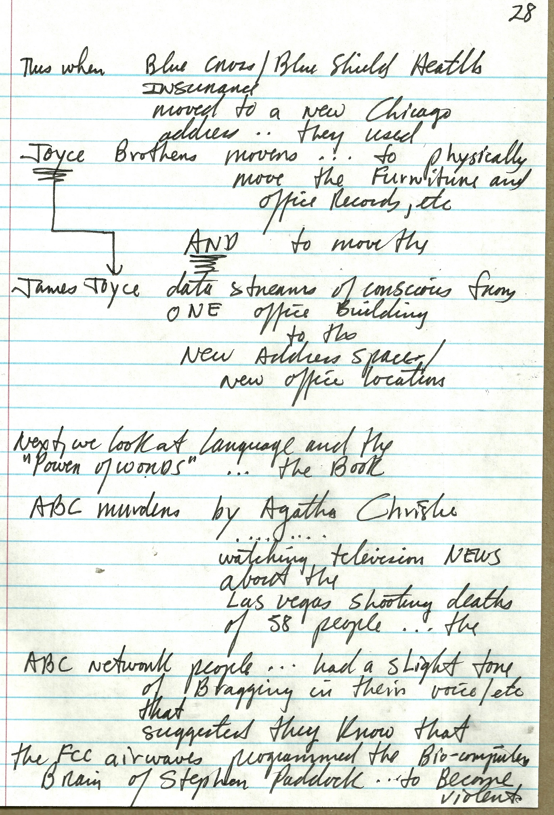 28
Thus when Blue Cross/Blue Shield Health
INSURANCE
moved to a new Chicago
address .. they used
Joyce Brothers movers ... to physically
move the Furniture and
office Records, etc
AND to move the
James Joyce data streams of conscious from
ONE office Building
to the
New Address space/
New office location
Next, we look at language and the
"Power of words" ... the Book
ABC murders by Agatha Christie
.........
watching television NEWS
about the
Las Vegas shooting deaths
of 58 people ... the
ABC network people ... had a slight tone
of Bragging in their voice/etc
that
suggested they know that
the FCC airwaves programmed the Bio-computer
Brain of Stephen Paddock ... to Become
violent